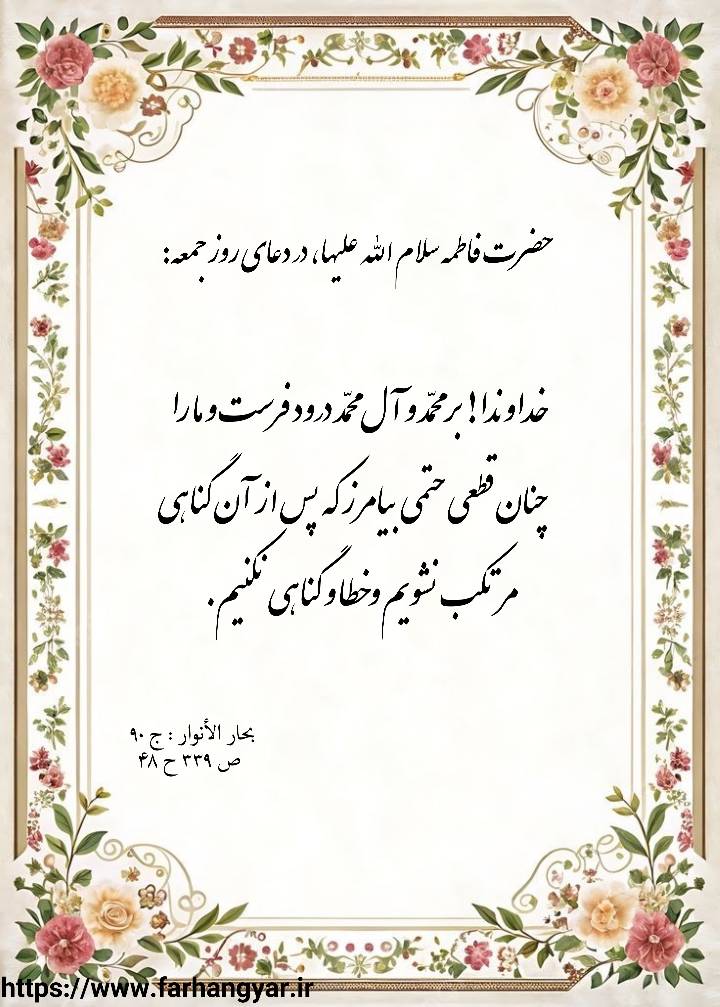 حضرت فاطمه سلام الله علیها، در دعای روز جمعه:
خداوندا! بر محمّد و آل محمّد درود فرست و ما را
چنان قطعی حتمی بیامرز که پس از آن گناهی
مرتکب نشویم و خطا و گناهی نکنیم.
بحار الأنوار : ج ۹۰
ص ۳۳۹ ح ۴۸
https://www.farhangyar.ir